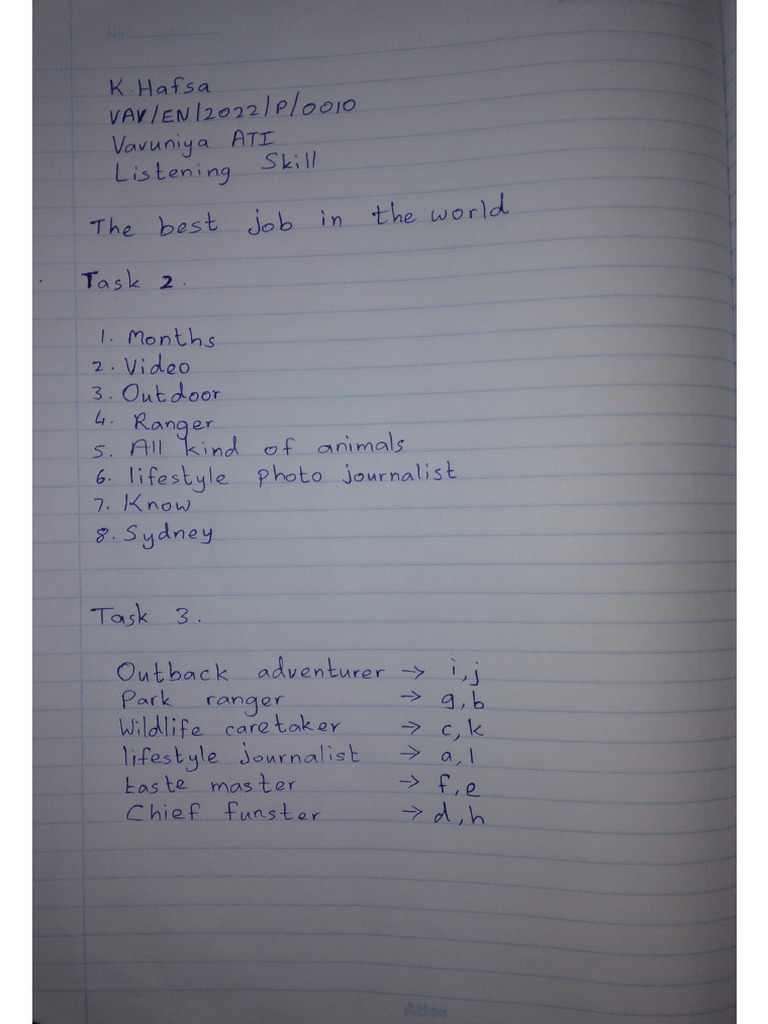 No:
K.Hafsa
VAV/EN/2022/P/0010
Vavuniya ATI
Listening Skill
The best job in the world
Task 2.
1. Months
2. Video
3. Outdoor
4. Ranger
5. All kind of animals
6. lifestyle photo journalist
7. Know
8. Sydney
Task 3.
Outback adventurer → i,j
Park ranger → g,b
Wildlife caretaker → c,k
lifestyle journalist → a,l
taste master → f,e
Chief funster → d,h
Atlas